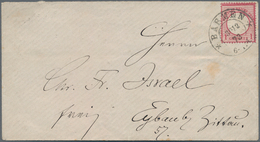 BARMEN
Herrn
Chr. Fr. Israel
frei
Eybau b/ Zittau.